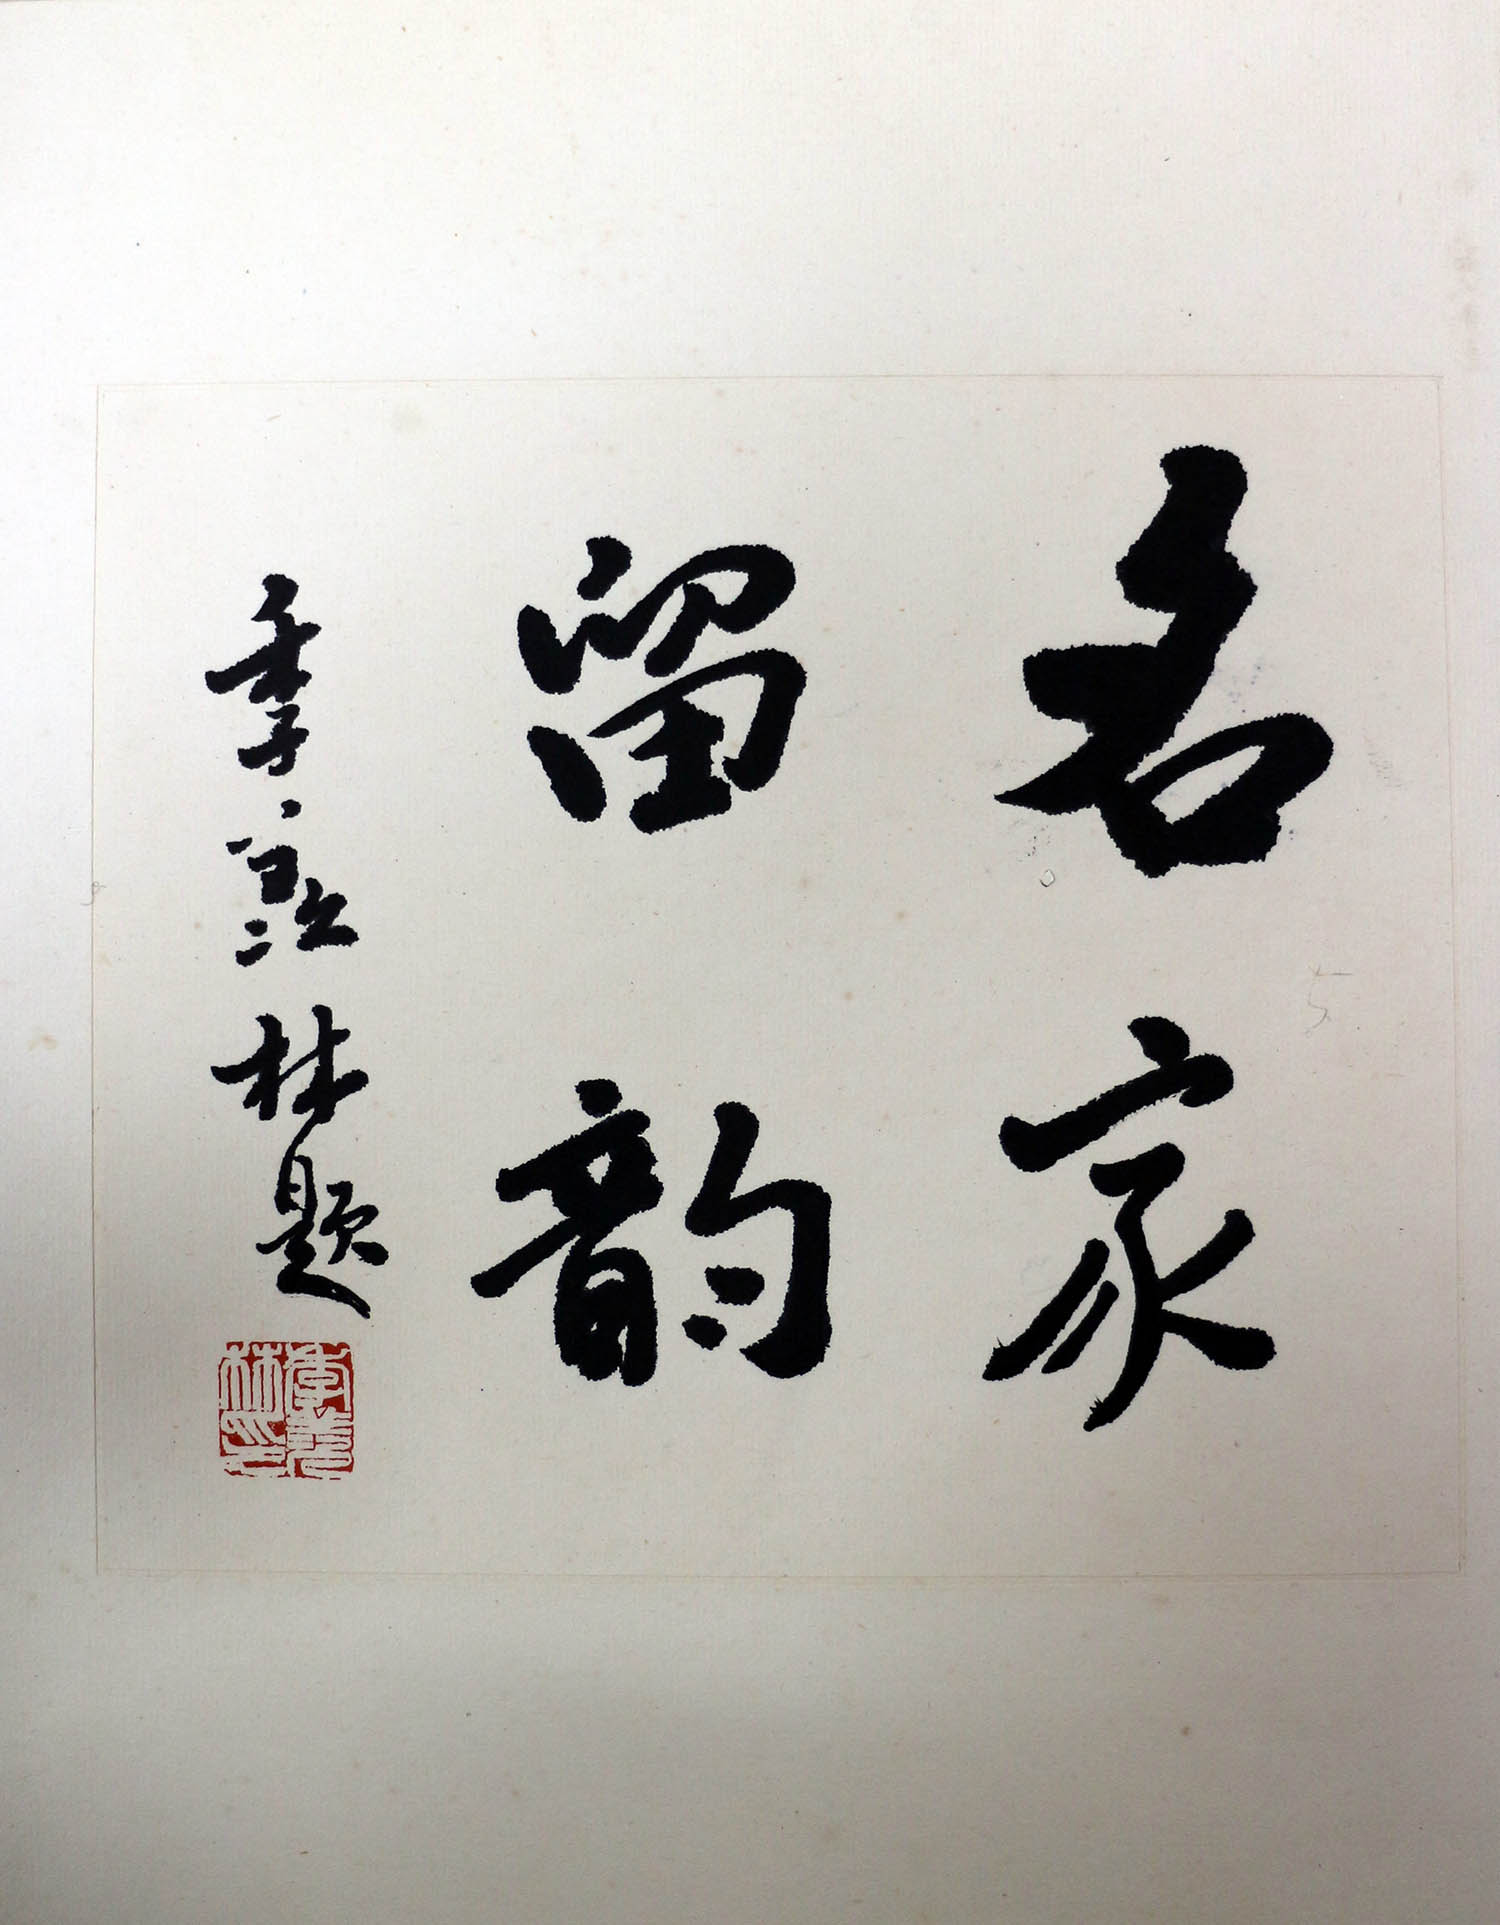 名家
留韵
季羡林题
季羡林印